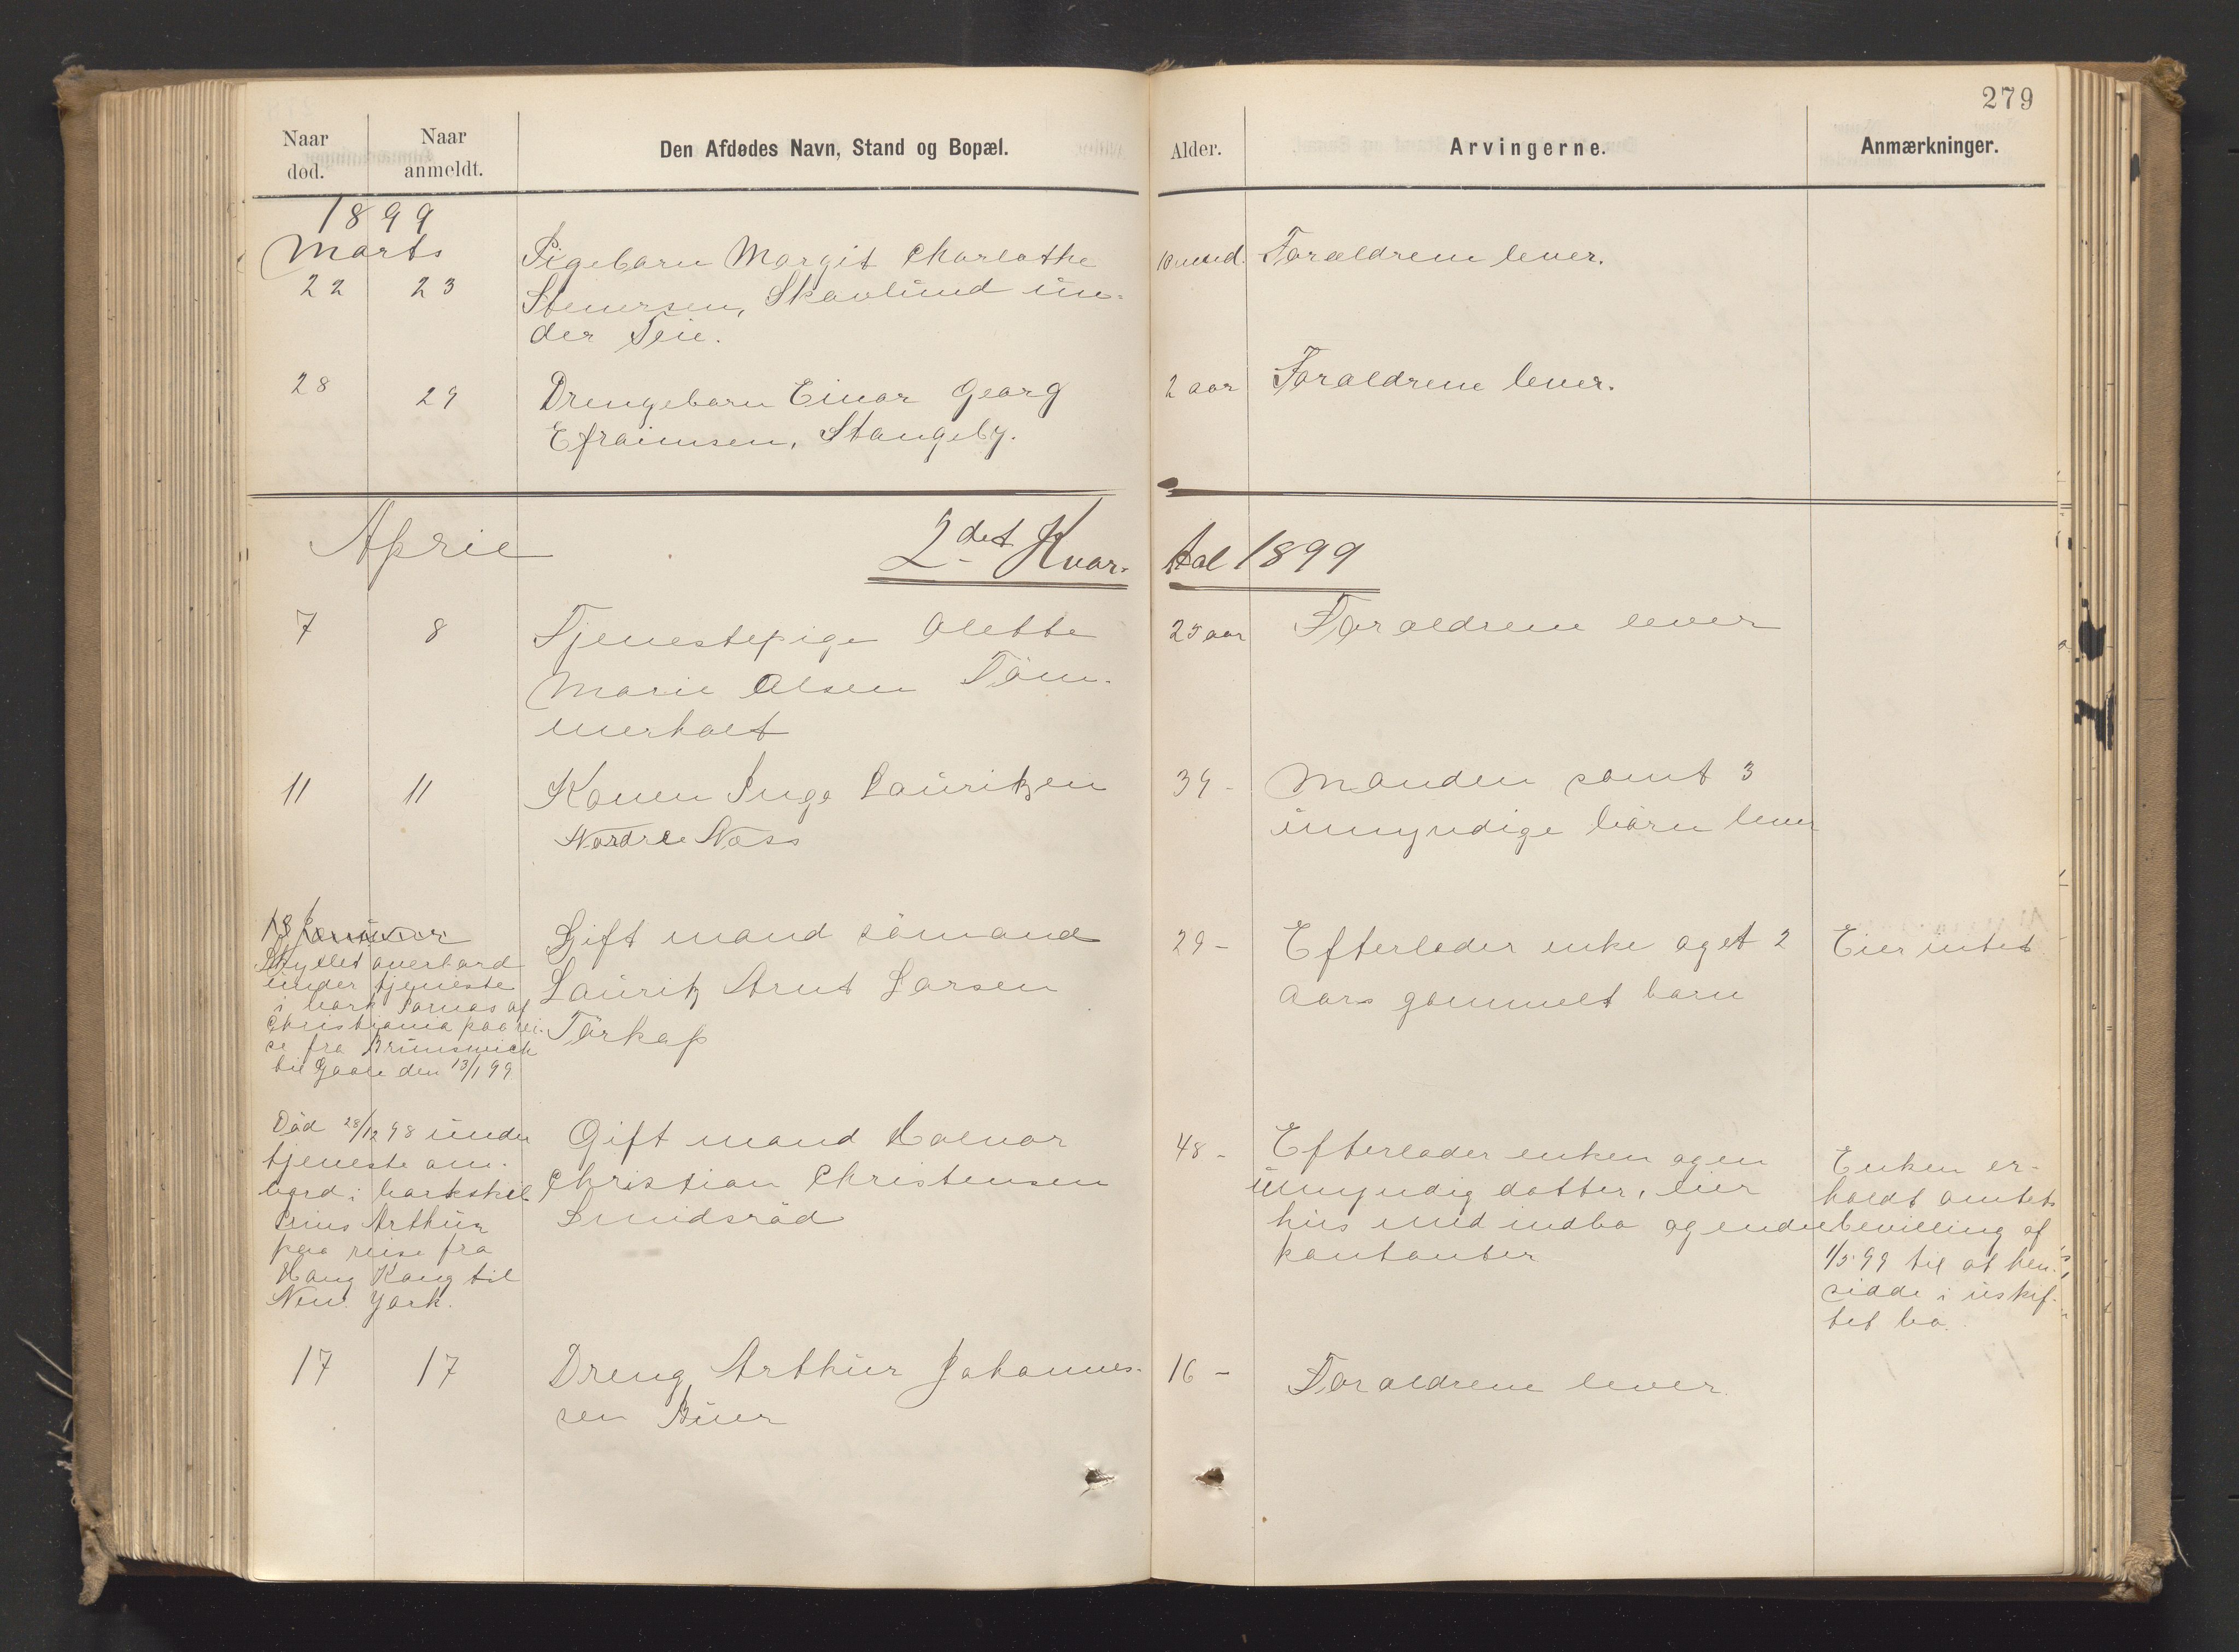 279
Naar død.
Naar anmeldt.
Den Afdødes Navn, Stand og Bopæl.
Alder.
Arvingerne.
Anmærkninger.
1899
Marts
22 23 Pigebarn Margit Charlothe
Stenersen, Skavlund un-
der Teie.
10 mnd. Foraldrene lever.
28 29 Drengebarn Einar Georg
Efraimsen, Stangeby.
2 aar Foraldrene lever.
April 2det Kvar-
tal 1899
7 8 Tjenestepige Alette
Marie Olsen Töm-
merholt
25 aar Foraldrene lever
11 11 Konen Inga Lauritzen
Nordre Nøss
39 - Manden samt 3
umyndige börn lever
18 Januar
Skyllet overbord
under tjeneste
i bark Parnas af
Christiania paa rei-
se fra Brunswick
til Goole den 13/1 99
Gift mand sömand
Lauritz Arnt Larsen
Torkop
29 - Efterlader enke og et 2
aars gammelt barn
Eier intet
Död 28/12 98 under
tjeneste om-
bord i barkskib
Prins Arthur
paa reise fra
Hong Kong til
New York.
Gift mand Halvor
Christian Christensen
Smidsröd
48 - Efterlader enken og en
umyndig datter, eier
hus med indbo og endel
kontanter
Enken er-
holdt amtets
bevilling af
1/5 99 til at hen-
sidde i uskif-
tet bo.
17 17 Dreng Arthur Johannes-
sen Buer
16 - Foraldrene lever.